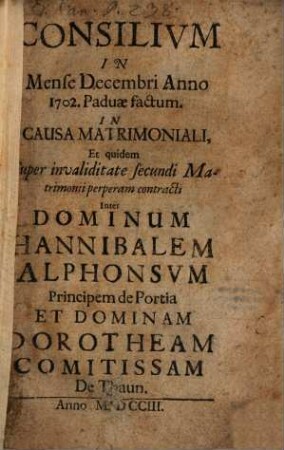 CONSILIVM
IN
Mense Decembri Anno
1702. Paduæ factum.
IN
CAUSA MATRIMONIALI,
Et quidem
super invaliditate secundi Ma-
trimonii perperam contracti
Inter
DOMINUM
HANNIBALEM
ALPHONSVM
Principem de Portia
ET DOMINAM
DOROTHEAM
COMITISSAM
De Thaun.
Anno M. DCCIII.